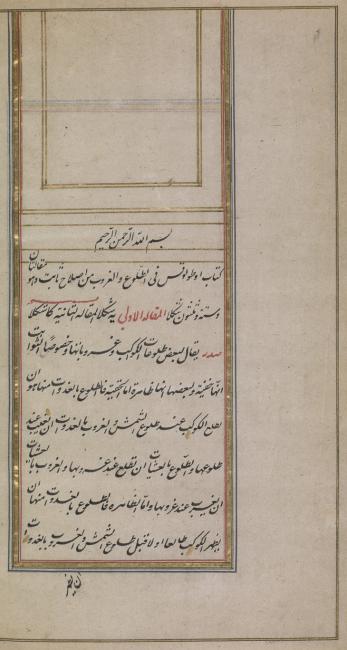 بسم الله الرحمن الرحيم
كتاب اوطولوقس فى الطلوع و الغروب من اصلاح ثابت وهو مقالتان
وستة وثلثون شكلا المقالة الاولى يج شكلا المقالة الثانية شكلا
صدر يقال لبعض طلوعات الكواكب وغروباتها وخصوصا الثوابت
انها خفية وبعضها انها ظاهرة اما الخفية فالطلوع بالغدوات منها هو ان
يطلع الكوكب عند طلوع الشمس والغروب بالغدوات ان يغيب عند
طلوعها والطلوع بالعشيات ان تطلع عند غروبها والغروب بالعشيات
ان تغرب عند غروبها واما الظاهرة فالطلوع بالغدوات منها ان
يظهر الكوكب طالعا اولا قبل طلوع الشمس والغروب بالغدوات